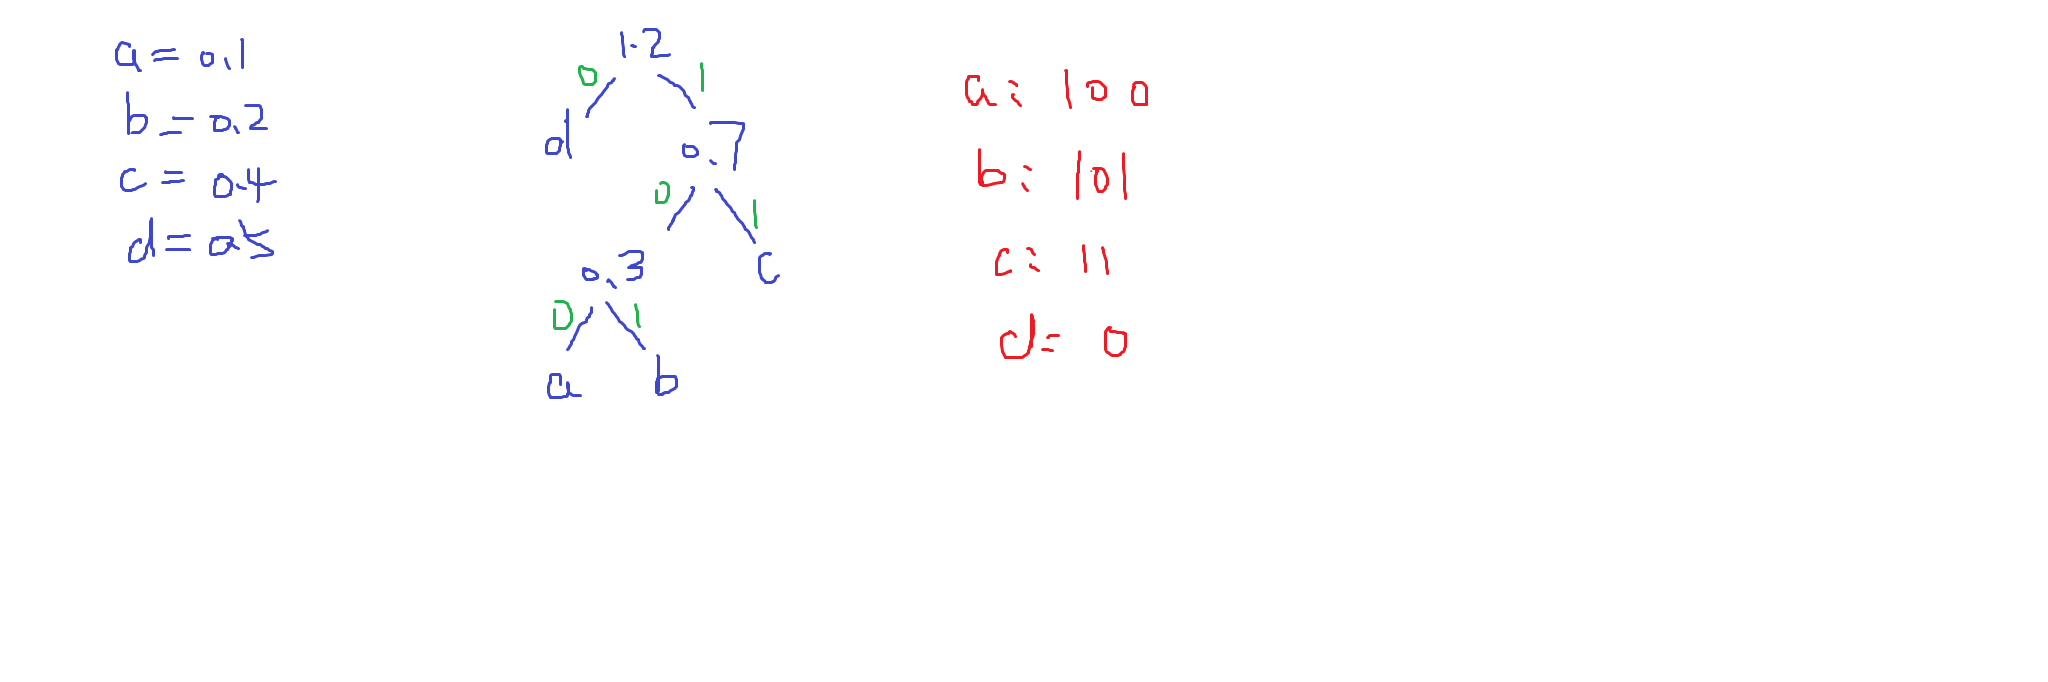 a = 0.1
b = 0.2
c = 0.4
d = 0.5
1.2
0 1
d
0.7
0 1
0.3
c
0 1
a b
a: 100
b: 101
c: 11
d= 0